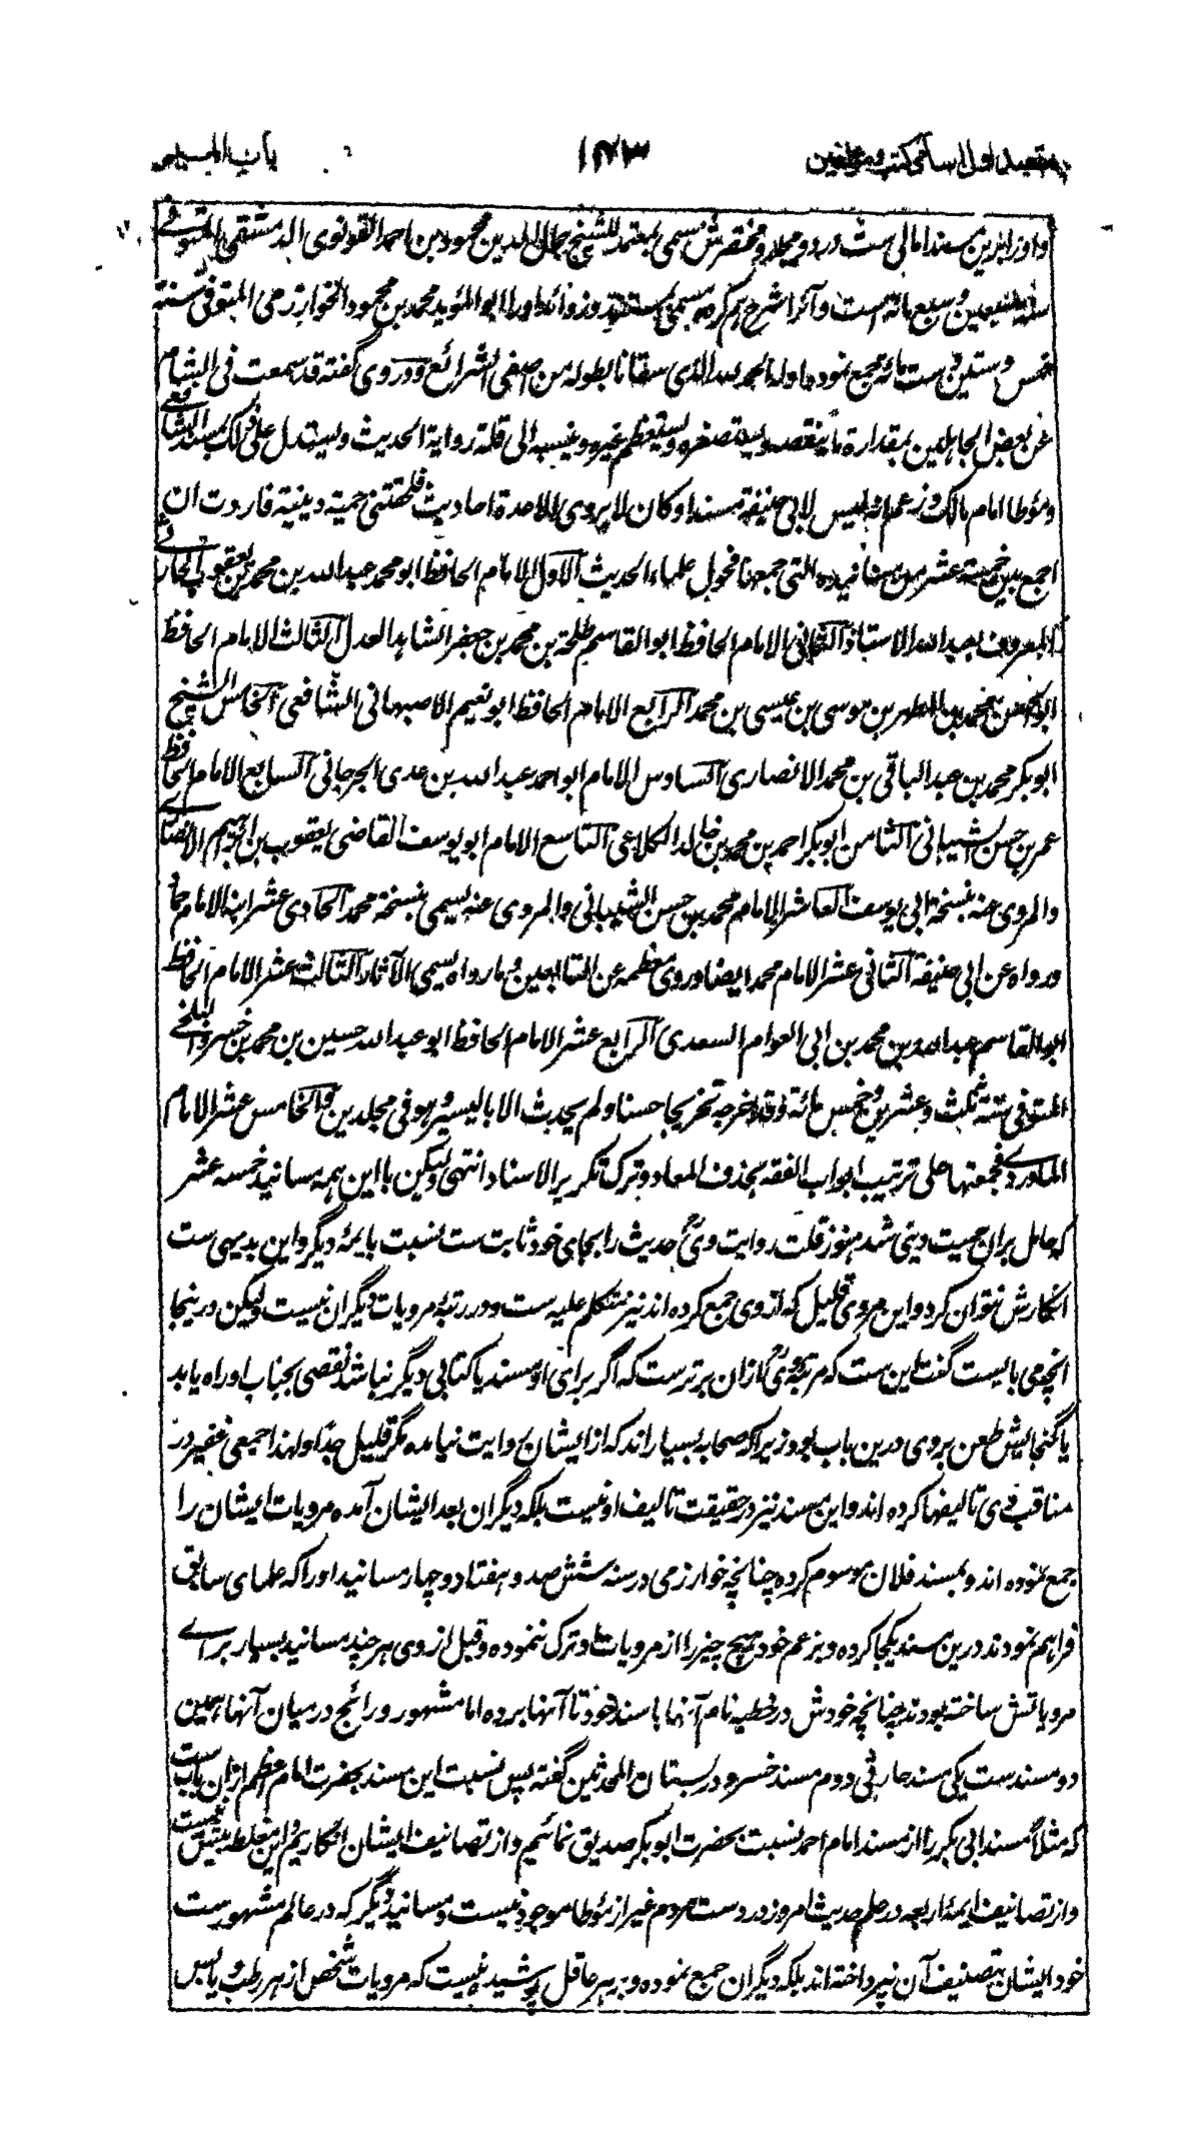 مقصد اول اسامی کتب و مؤلفین ۱۴۳ باب المیم
و او را برین مسند امالی ست در دو مجلد و مختصرش مسمی بمعتمد للشیخ جمال الدین محمود بن احمد القونوی الدمشقی المتوفے
سنة سبعین و سبع مائة است و آنرا شرح هم کرده مسمی بمستند و زوائد او را ابو المؤید محمد بن محمود الخوارزمی المتوفی سنة
خمس و ستین و ست مائه جمع نموده اوله الحمد لله الذی سقانا بطوله من اصفی الشرائع و در وی گفته قد سمعت فی الشام
عن بعض الجاهلین بمقداره ما ینقصه و یستصغره و یستعظم غیره و ینسبه الی قلة روایة الحدیث و یستدل علی ذلک بمسند الشافعی
و مؤطا امام مالک و زعم انه لیس لابی حنیفة مسند و کان لا یروی الا عدة احادیث فلحقتنی حمیة دینیة فاردت ان
اجمع بین خمسة عشر من مسانیده التی جمعها فحول علماء الحدیث الاول الامام الحافظ ابو محمد عبد الله بن محمد بن یعقوب الحارثے
المعروف بعبد الله الاستاذ الثانی الامام الحافظ ابو القاسم طلحة بن محمد بن جعفر الشاهد العدل الثالث الامام الحافظ
ابو الحسن محمد بن المظهر بن موسی بن عیسی بن محمد الرابع الامام الحافظ ابو نعیم الاصبهانی الشافعی الخامس الشیخ
ابو بکر محمد بن عبد الباقی بن محمد الانصاری السادس الامام ابو احمد عبد الله بن عدی الجرجانی السابع الامام الحافظ
عمر بن حسن الشیبانی الثامن ابو بکر احمد بن محمد بن خالد الکلاعی التاسع الامام ابو یوسف القاضی یعقوب بن ابراهیم الانصارے
و المروی عنه بنسخة ابی یوسف العاشر الامام محمد بن حسن الشیبانی و المروی عنه یسمی بنسخة محمد الحادی عشر ابنه الامام حماد
و رواه عن ابی حنیفة الثانی عشر الامام محمد ایضا و روی معظمه عن التابعین و ما رواه یسمی الآثار الثالث عشر الامام الحافظ
ابو القاسم عبد الله بن محمد بن ابی العوام السعدی الرابع عشر الامام الحافظ ابو عبد الله حسین بن محمد بن خسرو البلخے
المتوفی سنة ثلث و عشرین و خمس مائة و قد خرجه تخریجا حسنا و لم یحدث الا بالیسیر و هو فی مجلدین و الخامس عشر الامام
الماوردے فجمعتها علی ترتیب ابواب الفقه بحذف المعاد و ترک تکریر الاسناد انتهی و لیکن با این همه مسانید خمسه عشر
که حامل بران حمیت دینی شد هنوز قلت روایت وی حدیث را بجای خود ثابت ست نسبت بایمۀ دیگر و این بدیهی ست
انکارش نتوان کرد و این مروی قلیل که از وی جمع کرده اند نیز متکلم علیه ست و در رتبۀ مرویات دیگران نیست و لیکن درینجا
آنچه می بایست گفت این ست که مرتبۀ وی ازان برترست که اگر برای او مسند یا کتابی دیگر نباشد نقصی بجناب او راه یابد
یا گنجایش طعن بروی درین باب بود زیرا که صحابه بسیار اند که از ایشان روایت نیامده مگر قلیل جدا و لهذا جمعی غفیر در
مناقب وی تالیفها کرده اند و این مسند نیز در حقیقت تالیف او نیست بلکه دیگران بعد ایشان آمده مرویات ایشان را
جمع نموده اند و بمسند فلان موسوم کرده چنانچه خوارزمی در سنه شش صد و هفتاد و چهار مسانید او را که علمای سابق
فراهم نمودند درین مسند یکجا کرده و بزعم خود هیچ چیز را از مرویات او ترک ننموده و قبل از وی هر چند مسانید بسیار براے
مرویاتش ساخته بودند چنانچه خودش در خطبه نام آنها با سند خود تا آنها برده اما مشهور و رائج درمیان آنها همین
دو مسند ست یکی مسند حارثی دوم مسند خسرو در بستان المحدثین گفته پس نسبت این مسند بحضرت امام اعظم ازان باب ست
که مثلا مسند ابی بکر را از مسند امام احمد نسبت بحضرت ابو بکر صدیق نمائیم و از تصانیف ایشان انگاریم و این غلط بیش نیست
و از تصانیف ایمۀ اربعه در علم حدیث امروز در دست مردم غیر از مؤطا موجود نیست و مسانید دیگر که در عالم مشهورست
خود ایشان بتصنیف آن نپرداخته اند بلکه دیگران جمع نموده و بر هر عاقل پوشیده نیست که مرویات شخص از هر رطب و یابس